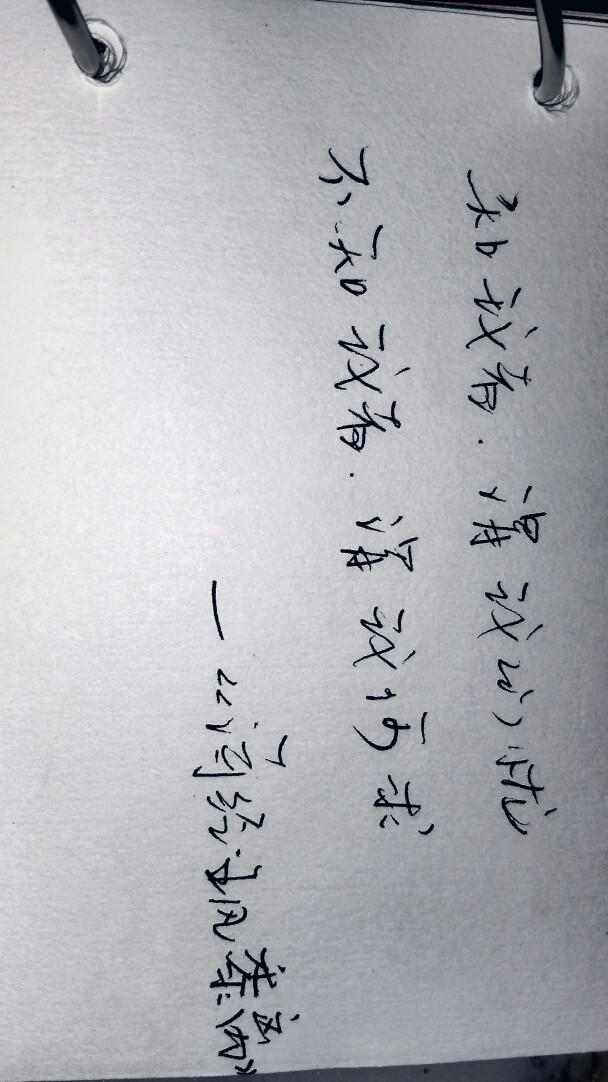 知我者.谓我心忧
不知我者.谓我何求
—《诗经·王风·黍离》